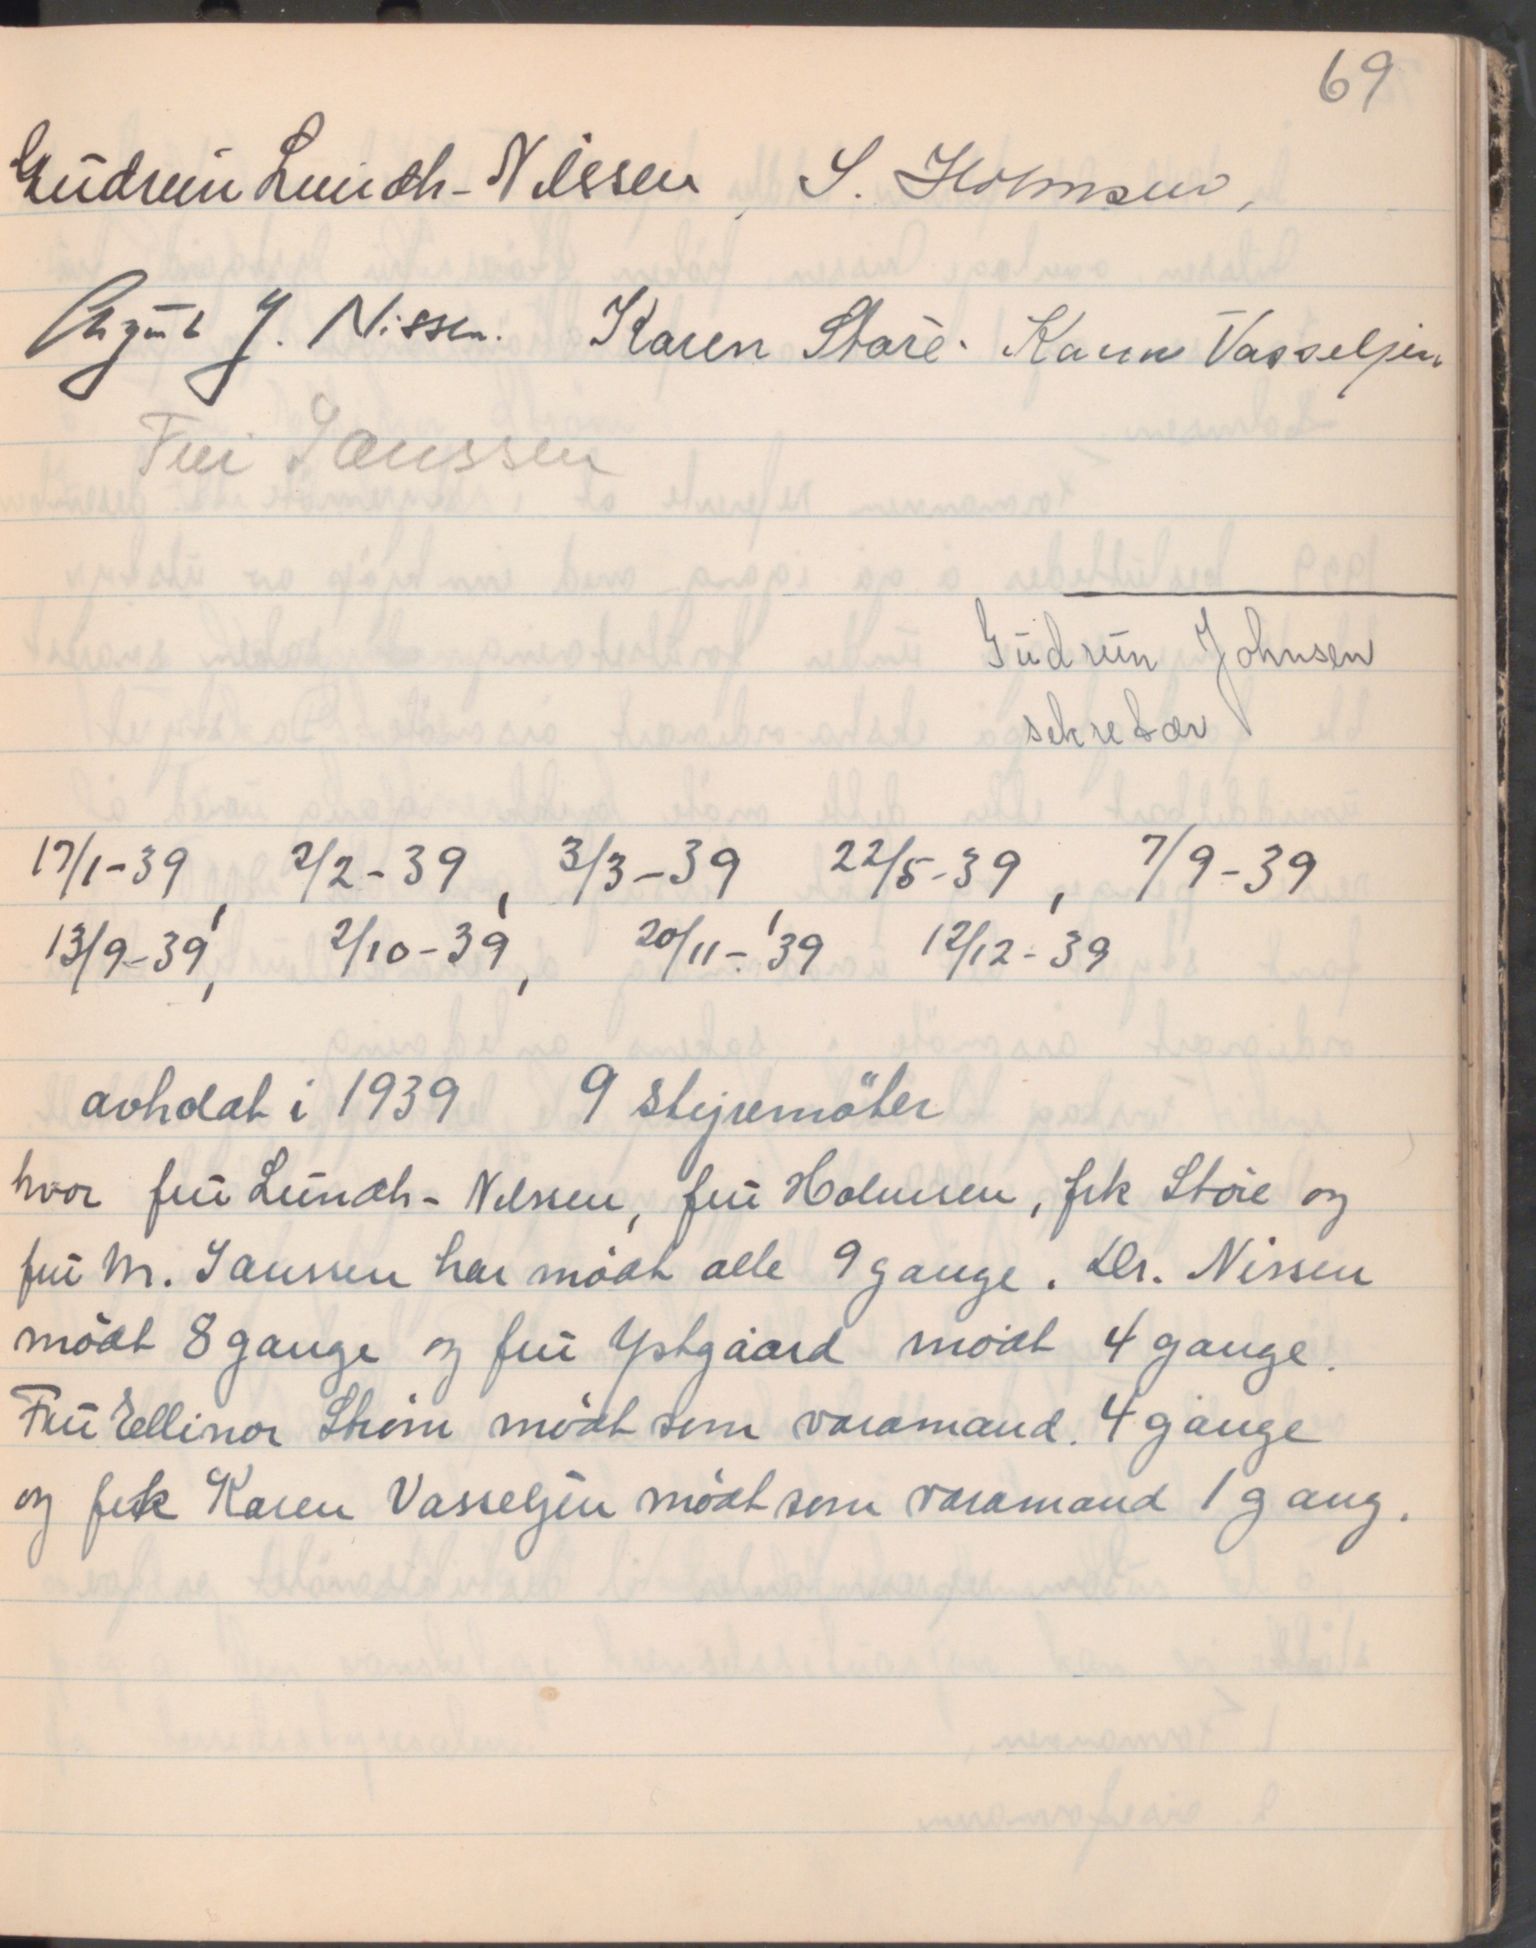 69
Gudrun Lundh-Nilssen, S. Holmsen,
J. Nissen. Karen Støre. Karen Vasseljen
Fru Janssen
Gudrun Johnsen
sekretær
17/1-39, 2/2-39, 3/3-39, 22/5-39, 7/9-39
13/9-39, 2/10-39, 20/11-39 12/12-39
avholdt i 1939 9 styremöter
hvor fru Lundh-Nilssen, fru Holmsen, frk Støre og
fru M. Janssen har mødt alle 9 gange. Dr. Nissen
mødt 8 gange og fru Ystgaard mødt 4 gange.
Fru Ellinor Strøm mødt som varamand. 4 gange
og frk Karen Vasseljen mødt som varamand 1 gang.